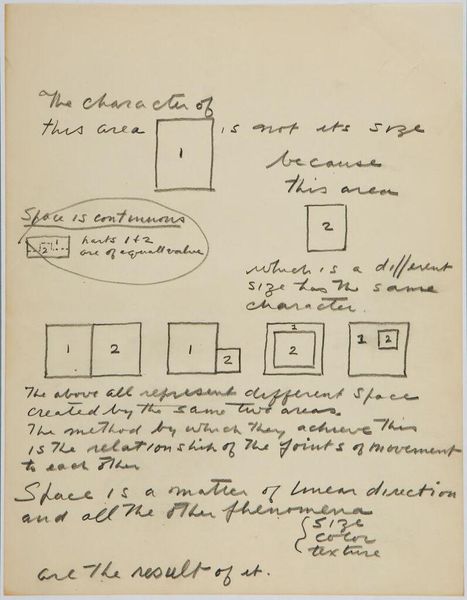 The character of
this area 1 is not its size
because
this area
2
Space is continuous
1
2
parts 1+2
are of equall value
which is a different
size has the same
character.
1 2 1 2 1 2 1 2
The above all represent different space
created by the same two areas.
The method by which they achieve this
is the relationship of the joints of movement
to each other
Space is a matter of linear direction
and all the other phenomena
{ size
color
texture
are the result of it.